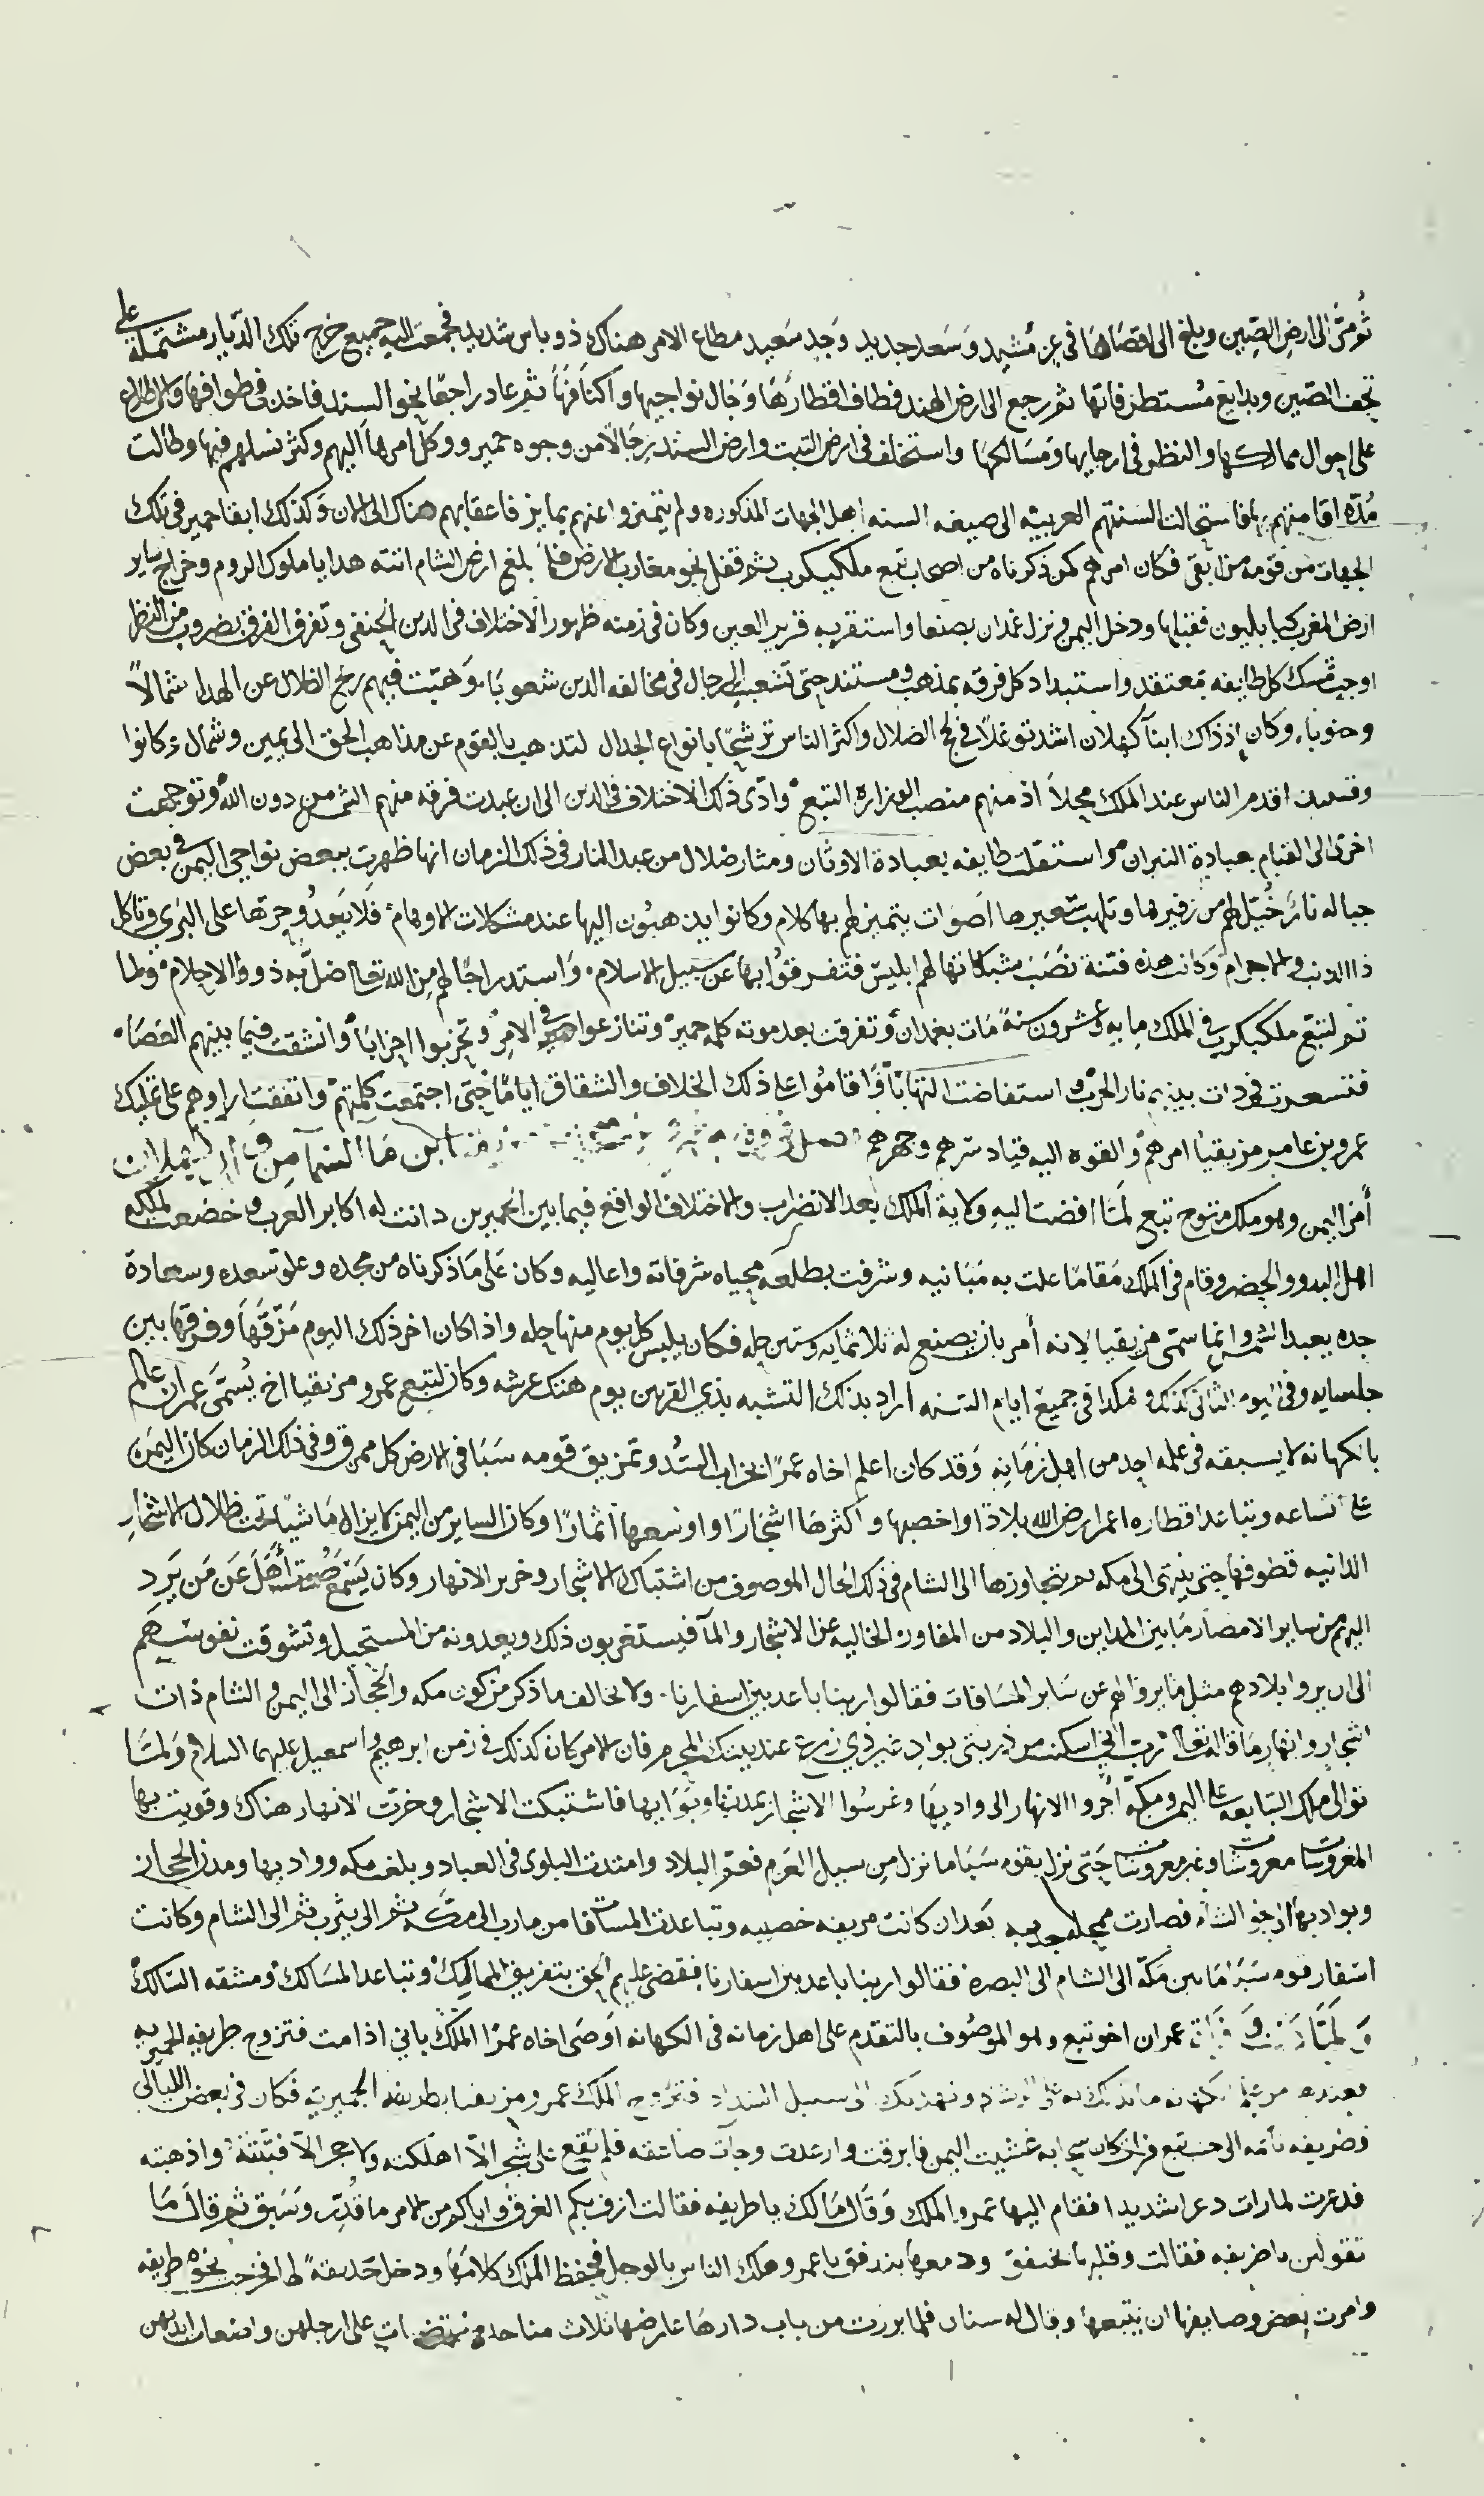 ثم مر الى ارض الصين وبلغ الى اقصاها في عز مشيد وسعد جديد وجد سعيد مطاع الامر هناك ذو باس شديد فجمعت اليه جميع خرج تلك الديار مشتملة على
تحف الصين وبدايع مستطرفاتها ثم رجع الى ارض الهند فطاف اقطارها وجال نواحيها واكنافها ثم عاد راجعا نحو السند فاخذ في طوافها والاطلاع
على احوال ممالكها والنظر في ارجايها ومسالكها واستخلف في ارض التبت وارض السند رجالا من وجوه حمير ووكل امرها اليهم وكثر نسلهم فيها وطالت
مدة اقامتهم بها فاستحالت السنتهم العربيه الى صيغه السنه اهل الجهات المذكوره ولم يتميزوا عنهم بمايز فاعقابهم هناك الى الان وكذلك ابقا حمير في تلك
الجهات من قومه من ابقى فكان امرهم كمن ذكرناه من اصحاب تبع ملكيكرب ثم قفل نحو مغارب الارض فلما بلغ ارض الشام اتته هدايا ملوك الروم وخراج ساير
ارض المغرب كبابليون فقبلها ودخل اليمن ونزل غمدان بصنعا واستقر به قرير العين وكان في زمنه ظهور الاختلاف في الدين الحنفي وتفرق الفرق بضروب من النظر
اوجبت تمسك كل طايفه بمعتقد واستبداد كل فرقه بمذهب ومستند حتى تشعب الرجال في مخالفه الدين شعوبا وهبت فيهم ريح الضلال عن الهدا شمالا
وجنوبا وكان اذ ذاك ابنا كهلان اشد توغلا في لجج الضلال واكثر الناس ترشحا بانواع الجدال لتذهب بالقوم عن مذاهب الحق الى يمين وشمال وكانوا
اقدم الناس عند الملك محلا اذ منهم منصب الوزاره التبع وادى ذلك الاختلاف في الدين الى ان عبدت فرقه منهم الشمس من دون الله وتوجهت
اخرى الى القيام بعبادة النيران واستقلت طايفه بعبادة الاوثان ومثار ضلال من عبد النار في ذلك الزمان انها ظهرت ببعض نواحي اليمن في بعض
جباله نار خيل لهم من زفيرها وتلهب سعيرها اصوات يتميز لهم بها كلام وكانوا يذهبون اليها عند مشكلات الاوهام فلا يعدو حرتها على البرى وتاكل
ذا الذنب والاجرام وكانت هذه فتنة نصب شبكاتها لهم ابليس فتفرقوا بها عن سبيل الاسلام واستدراجا لهم من الله تعالى ضل به ذووا الاحلام ولما
تم لتبع ملكيكرب في الملك مايه وعشرون سنة مات بغمدان وتفرقت بعد موته كلمه حمير وتنازعوا في الامر وتحزبوا احزابا وانشقت فيما بينهم العصا
فتسعرت بينهم نار الحرب استفاضت التهابا فاقاموا على ذلك الخلاف والشقاق اياما حتى اجتمعت كلمتهم واتفقت اراوهم على تمليك
عمرو بن عامر مزيقيا امرهم والقوه اليه قياد سرهم وجهرهم ابن ما السما
امر اليمن وهو ملك متوج تبع لما افضت اليه ولاية الملك بعد الاضطراب والاختلاف الواقع فيما بين الحميرين دانت له اكابر العرب وخضعت لملكه
اهل البدو والحضر وقام في الملك مقاما علت به مبانيه وشرفت بطلعه محياه شرفاته واعاليه وكان على ما ذكرناه من مجده وعلو سعده وسعادة
جده يعبد الشمس وانما سمى مزيقيا لانه امر بان يصنع له ثلاثمايه وستين حله فكان يلبس كل يوم منها حله واذا كان اخر ذلك اليوم مزقها وفرقها بين
جلسايه وفي اليوم الثاني كذلك وهكذا في جميع ايام السنه اراد بذلك التشبه بذي القرنين يوم هتك عرشه وكان لتبع عمرو مزيقيا اخ يسمى عمران عالم
بالكهانه لا يسبقه في علمه احد من اهل زمانه وقد كان اعلم اخاه عمرا بخراب السد وتمزيق قومه سبا في الارض كل ممزق وفي ذلك الزمان كان اليمن
على اتساعه وتباعد اقطاره اعمر ارض الله بلادا واخصبها واكثرها اشجارا واوسعها اثمارا وكان الساير من اليمن لا يزال ماشيا تحت ظلال الاشجار
الدانيه قطوفها حتى ينتهى الى مكه ثم يتجاوزها الى الشام في ذلك الحال الموصوف من اشتباك الاشجار وخرير الانهار وكان يسمع اهل عن من يرد
اليهم من ساير الامصار ما بين المداين والبلاد من المفاوز الخاليه عن الاشجار والما فيستغربون ذلك ويعدونه من المستحيل وتشوقت نفوسهم
الى ان يروا بلادهم مثل ما يروا لهم عن ساير المسافات فقالوا ربنا باعد بين اسفارنا ولا يخالف ما ذكر من كون مكه والحجاز الى اليمن والشام ذات
اشجار وانهار ما قاله تعالى رب اني اسكنت من ذريتي بواد غير ذي زرع عند بيتك المحرم فان الامر كان كذلك في زمن ابرهيم واسمعيل عليهما السلام ولما
توالى ملك التبابعه على اليمن ومكة اجروا الانهار الى واديها وغرسوا الاشجار بمدنها وبواديها فاشتبكت الاشجار وخرت الانهار هناك وقويت بها
المغروسات معروشات وغير معروشات حتى نزل بقوم سبا ما نزل من سيل العرم فعم البلاد وامتدت البلوى في العباد وبلغت مكه وواديها ومدن الحجاز
وبواديها الى نحو الشام فصارت بعد ان كانت مريفه خصيبه وتباعدت المسافات من مارب الى مكه ثم الى يثرب ثم الى الشام وكانت
اسفار قوم سبا ما بين مكة الى الشام الى البصرة فقالوا ربنا باعد بين اسفارنا فقضى عليهم الحق بتفريق الممالك وتباعد المسالك ومشقه السالك
ولما عمران اخو تبع وهو الموصوف بالتقدم على اهل زمانه في الكهانه اوصى اخاه عمرا الملك باني اذا مت فتزوج طريفه الحميريه
فتزوج الملك عمرو مزيقيا بطريفه الحميرية فكان في بعض الليالي
وطريفه نايمه الى جنب تبع سحابه غشيت اليمن فابرقت وارعدت وجات صاعقه فلم تقع على شجر الا اهلكته ولا حجر الا فتتته واذهبته
فذعرت لما رات ذعرا شديدا فقام اليها عمرو الملك وقال مالك يا طريفه فقالت ازف بكم الغرق واياكم من الامر ما قدر وسبق ثم قال ما
تقولين يا طريفه فقالت وقلبها يخفق ودمعها يندفق يا عمرو هلك الناس بالوجل فحفظ الملك كلامها ودخل حديقة لها فخرجت نحوه طريفه
وامرت بعض وصايفها ان يتبعها وقال له سنان فلما برزت من باب دارها عارضها ثلاث مناجد منتصبات على ارجلهن واضعات ايديهن